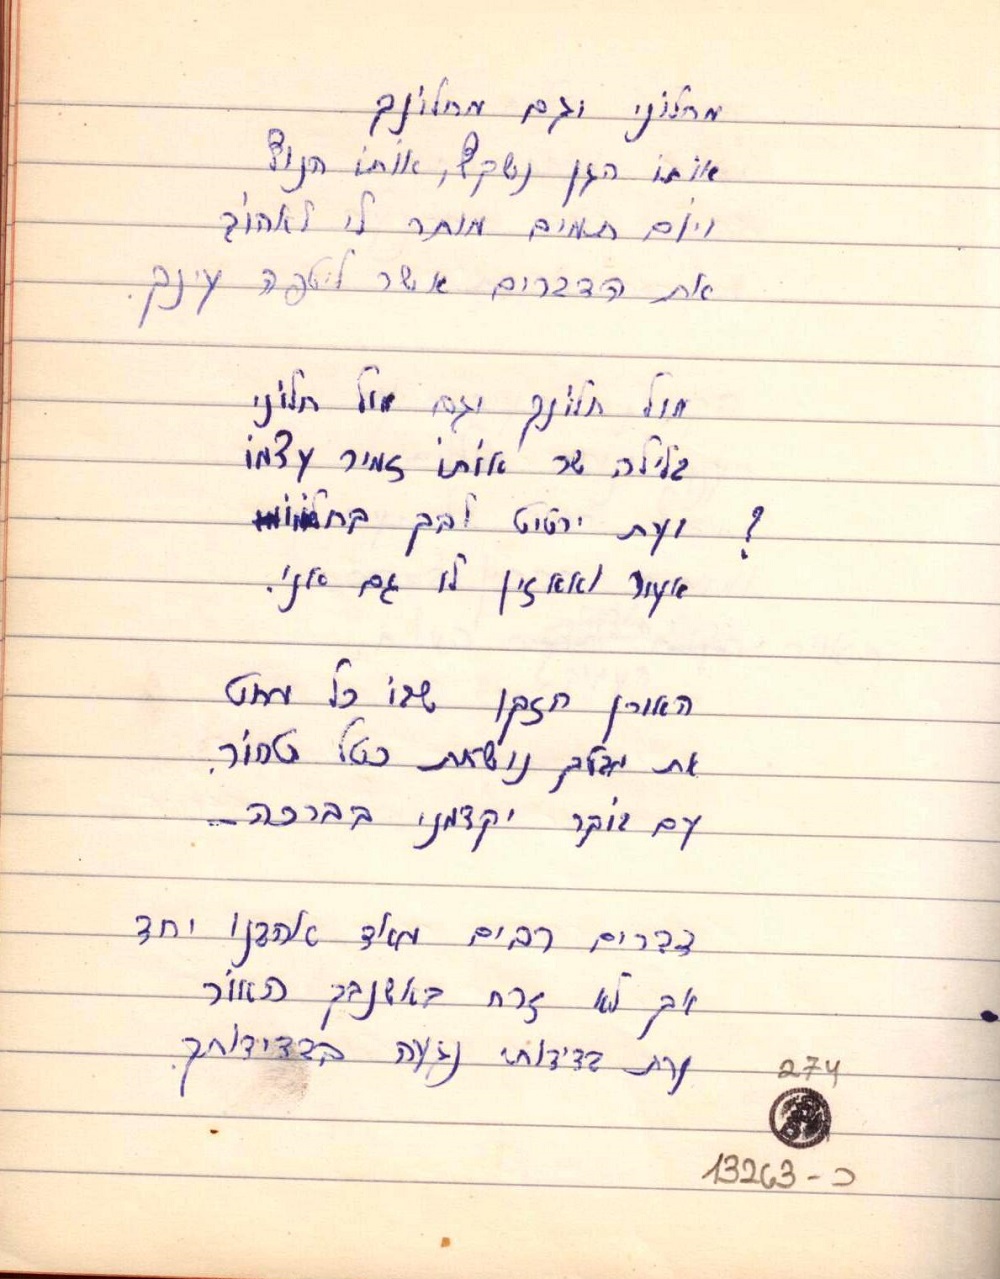 מחלוני וגם מחלונך
אותו הגן נשקף, אותו הנוף
ויום תמים מותר לי לאהוב
את הדברים אשר ליטפה עינך.
מול חלונך וגם מול חלוני
בלילה שר אותו זמיר עצמו
? ועת ירטיט לבך בחלומו
אעור ואאזין לו גם אני.
האורן הזקן שבו כל מחט
את מבטך נושאת כטל טהור.
עם בוקר יקדמני בברכה
דברים רבים מאד אהבנו יחד
אך לא זרח באשנבך האור
עת בדידותי נגעה בבדידותך.
274
כ - 13263